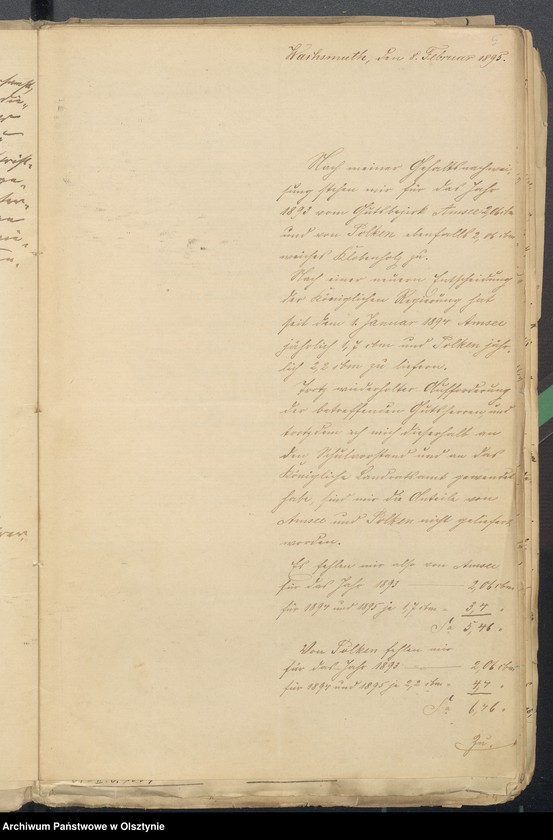 Wachsmuth, den 8. Februar 1895.
Nach meiner Gehaltsnachwei-
sung stehen mir für das Jahr
1893 vom Gutsbezirk Amsee 2,06 cbm
und von Polken ebenfalls 2,06 cbm
weiches Klobenholz zu.
Nach einer neuern Entscheidung
der Königlichen Regierung hat
seit dem 1. Januar 1894 Amsee
jährlich 1,7 cbm und Polken jähr-
lich 2,2 cbm zu liefern.
Trotz wiederholter Aufforderung
der betreffenden Gutsherren und
trotzdem ich mich dieserhalb an
den Schulvorstand und an das
Königliche Landratsamt gewendet
habe, sind mir die Anteile von
Amsee und Polken nicht geliefert
worden.
Es fehlen mir also von Amsee
für das Jahr 1893 — 2,06 cbm
für 1894 und 1895 je 1,7 cbm = 3,4 "
Sa. 5,46 "
Von Polken fehlen mir
für das Jahr 1893 — 2,06 cbm
für 1894 und 1895 je 2,2 cbm = 4,4 "
Sa. 6,46 "
Archiwum Państwowe w Olsztynie